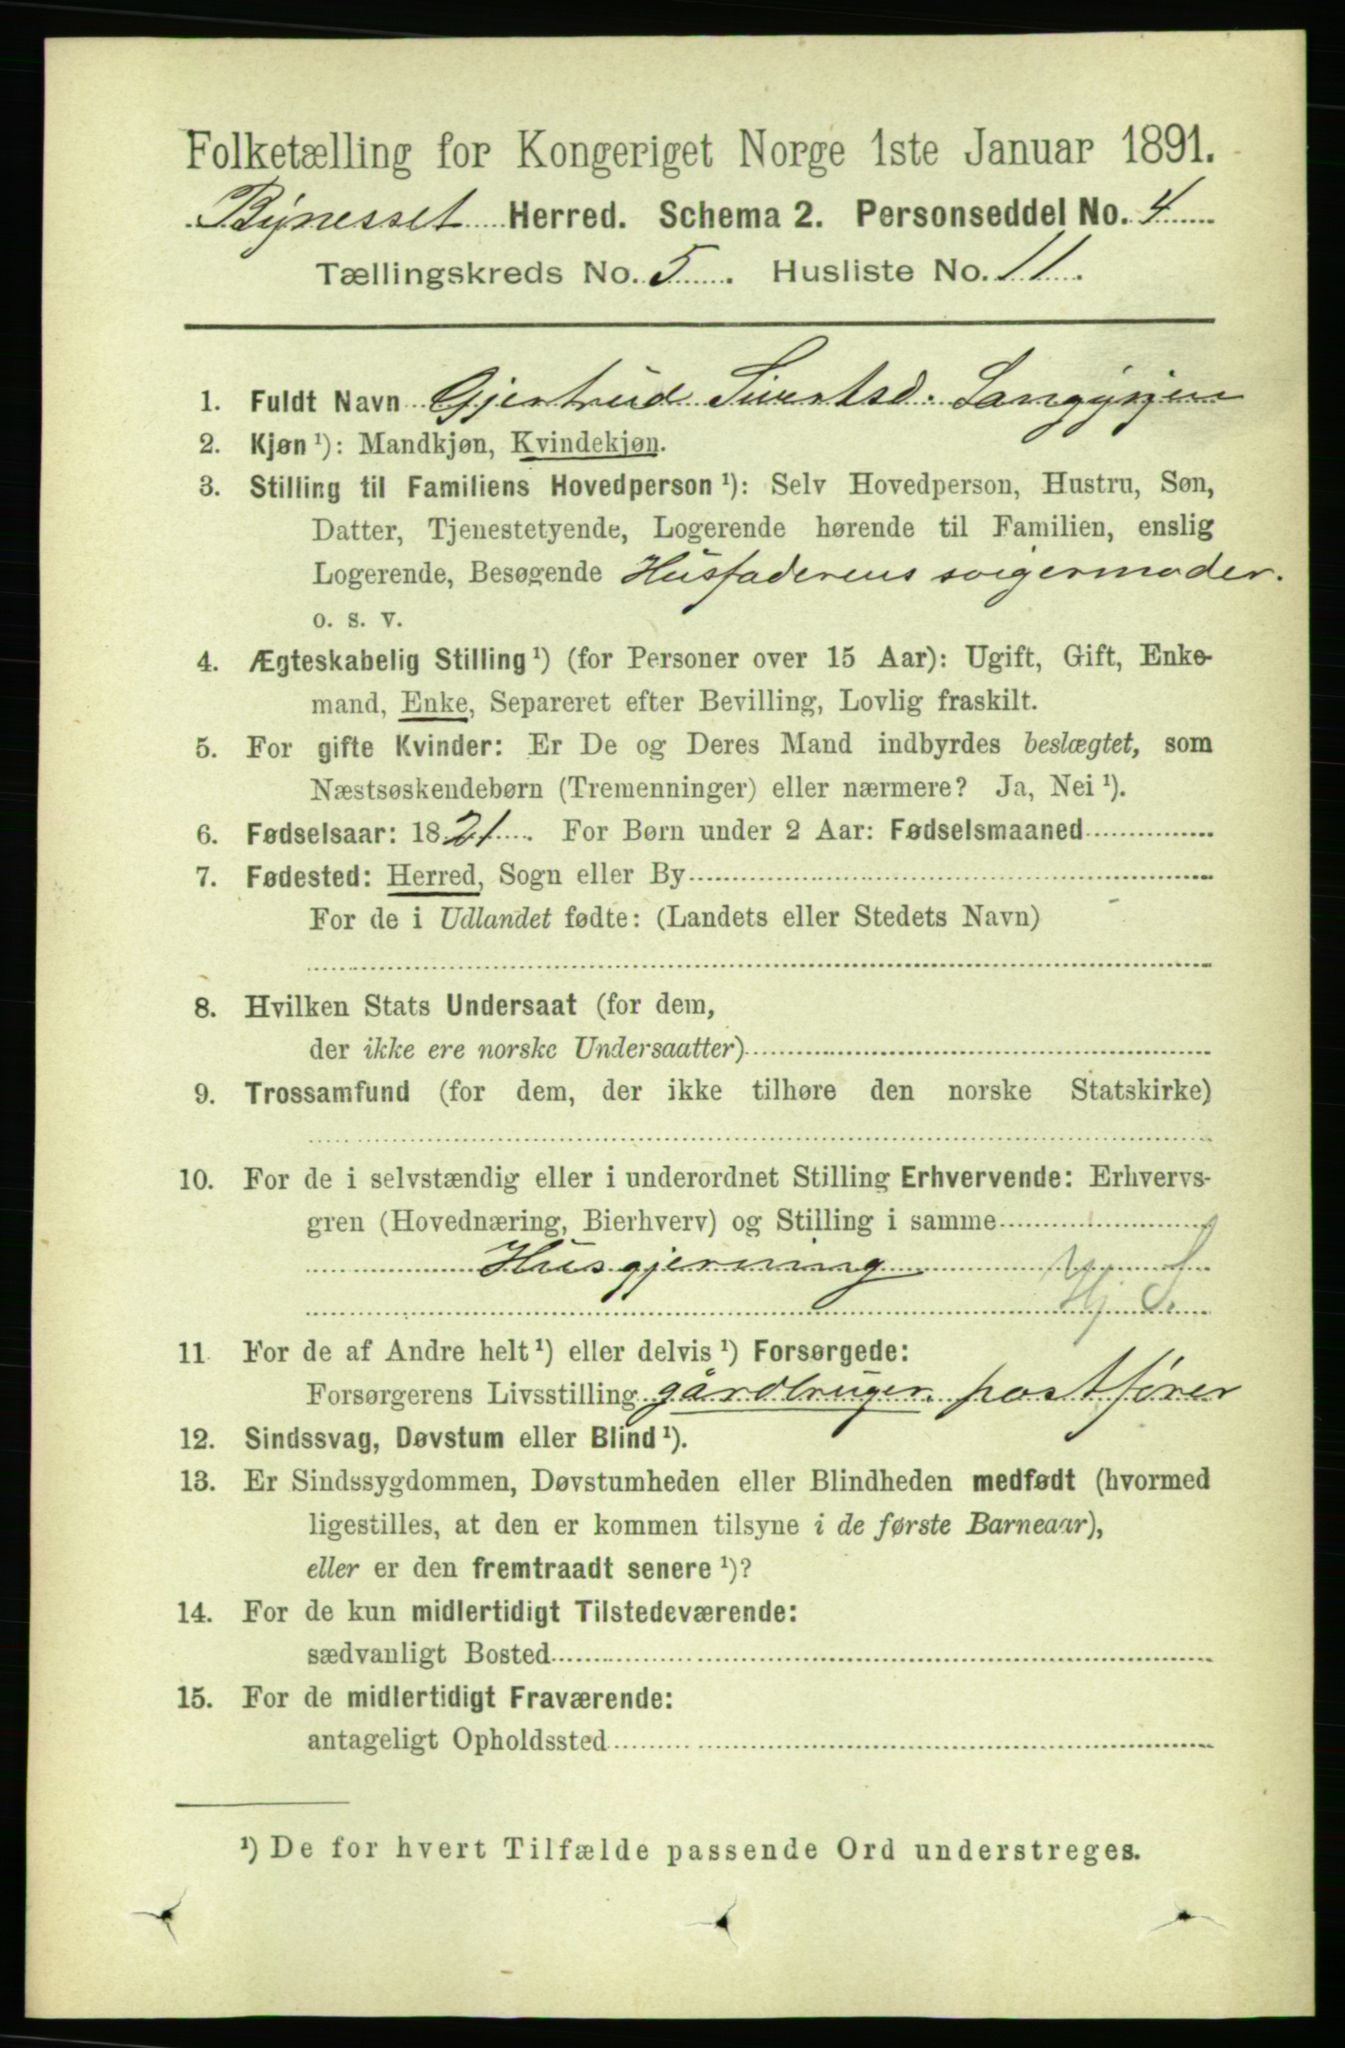 Folketælling for Kongeriget Norge 1ste Januar 1891.
Bynesset Herred. Schema 2. Personseddel No. 4
Tællingskreds No. 5. Husliste No. 11.
1. Fuldt Navn Gjertrud Sivertsd.
2. Kjøn ¹): Mandkjøn, Kvindekjøn.
3. Stilling til Familiens Hovedperson ¹): Selv Hovedperson, Hustru, Søn,
Datter, Tjenestetyende, Logerende hørende til Familien, enslig
Logerende, Besøgende Husfaderens svigermoder.
o. s. v.
4. Ægteskabelig Stilling ¹) (for Personer over 15 Aar): Ugift, Gift, Enke-
mand, Enke, Separeret efter Bevilling, Lovlig fraskilt.
5. For gifte Kvinder: Er De og Deres Mand indbyrdes beslægtet, som
Næstsøskendebørn (Tremenninger) eller nærmere? Ja, Nei ¹).
6. Fødselsaar: 1821. For Børn under 2 Aar: Fødselsmaaned
7. Fødested: Herred, Sogn eller By
For de i Udlandet fødte: (Landets eller Stedets Navn)
8. Hvilken Stats Undersaat (for dem,
der ikke ere norske Undersaatter)
9. Trossamfund (for dem, der ikke tilhøre den norske Statskirke)
10. For de i selvstændig eller i underordnet Stilling Erhvervende: Erhvervs-
gren (Hovednæring, Bierhverv) og Stilling i samme
Husgjerning
Hj. S.
11 For de af Andre helt ¹) eller delvis ¹) Forsørgede:
Forsørgerens Livsstilling gårdbruger. postfører
12. Sindssvag, Døvstum eller Blind ¹).
13. Er Sindssygdommen, Døvstumheden eller Blindheden medfødt (hvormed
ligestilles, at den er kommen tilsyne i de første Barneaar),
eller er den fremtraadt senere ¹)?
14. For de kun midlertidigt Tilstedeværende:
sædvanligt Bosted
15. For de midlertidigt Fraværende:
antageligt Opholdssted
¹) De for hvert Tilfælde passende Ord understreges.